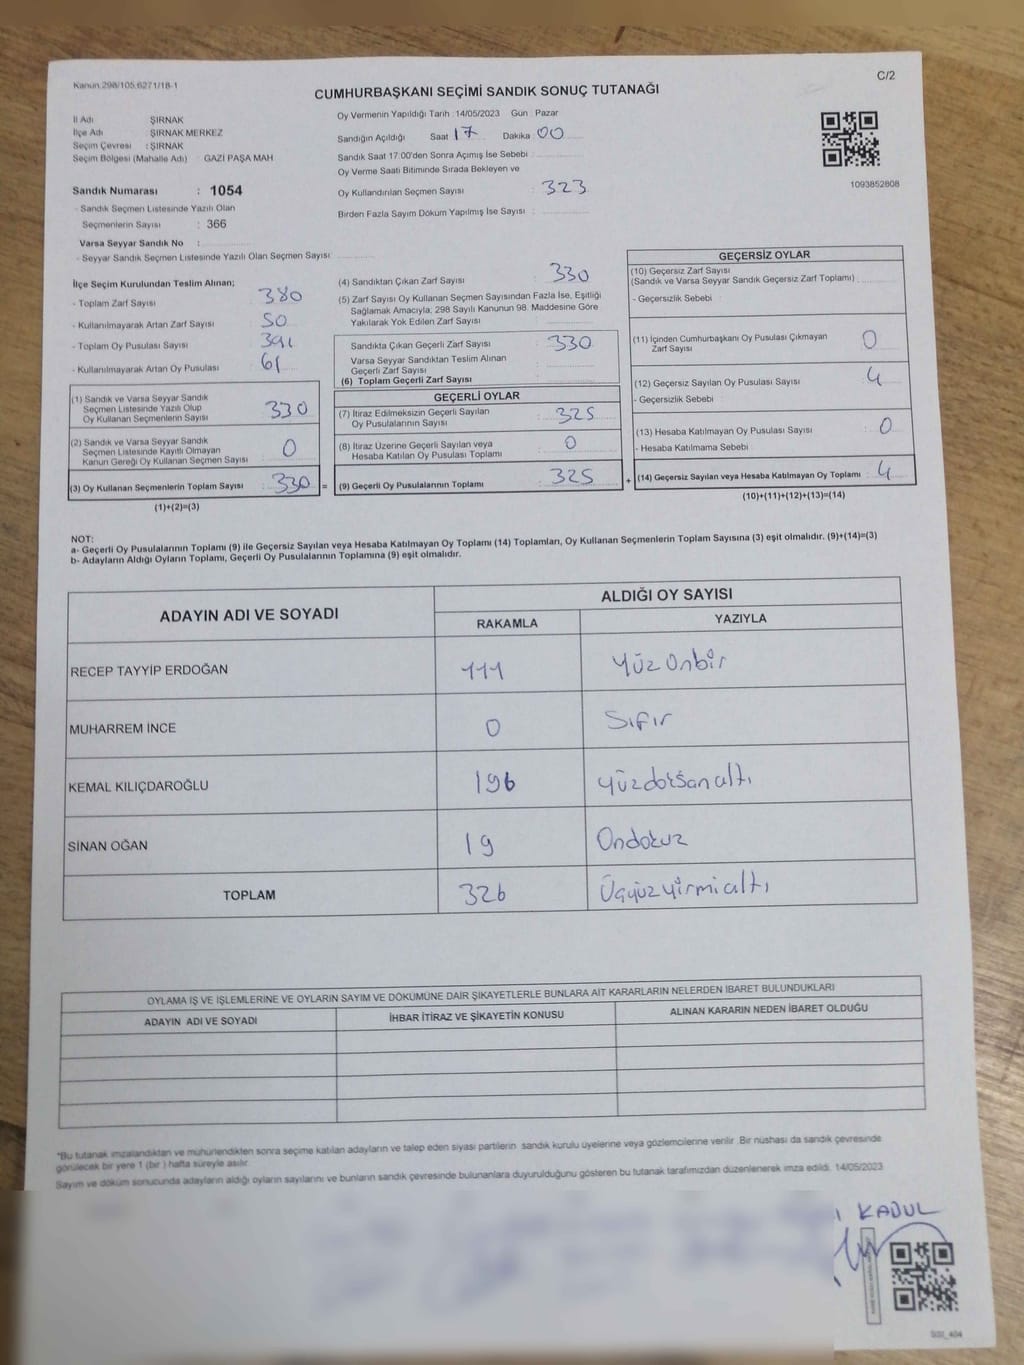 Kanun 298/105,6271/18-1
C/2
CUMHURBAŞKANI SEÇİMİ SANDIK SONUÇ TUTANAĞI
İl Adı ŞIRNAK
İlçe Adı : ŞIRNAK MERKEZ
Seçim Çevresi : ŞIRNAK
Seçim Bölgesi (Mahalle Adı) : GAZİ PAŞA MAH
Sandık Numarası : 1054
- Sandık Seçmen Listesinde Yazılı Olan
Seçmenlerin Sayısı : 366
Varsa Seyyar Sandık No :
- Seyyar Sandık Seçmen Listesinde Yazılı Olan Seçmen Sayısı:
Oy Vermenin Yapıldığı Tarih :14/05/2023 Gün : Pazar
Sandığın Açıldığı Saat 17 Dakika 00
Sandık Saat 17.00'den Sonra Açımış İse Sebebi :
Oy Verme Saati Bitiminde Sırada Bekleyen ve
Oy Kullandırılan Seçmen Sayısı : 323
Birden Fazla Sayım Döküm Yapılmış İse Sayısı :
1093852808
İlçe Seçim Kurulundan Teslim Alınan;
- Toplam Zarf Sayısı : 380
- Kullanılmayarak Artan Zarf Sayısı : 50
- Toplam Oy Pusulası Sayısı : 391
- Kullanılmayarak Artan Oy Pusulası : 61
(1) Sandık ve Varsa Seyyar Sandık
Seçmen Listesinde Yazılı Olup
Oy Kullanan Seçmenlerin Sayısı : 330
(2) Sandık ve Varsa Seyyar Sandık
Seçmen Listesinde Kayıtlı Olmayan
Kanun Gereği Oy Kullanan Seçmen Sayısı : 0
(3) Oy Kullanan Seçmenlerin Toplam Sayısı : 330 =
(1)+(2)=(3)
(4) Sandıktan Çıkan Zarf Sayısı : 330
(5) Zarf Sayısı Oy Kullanan Seçmen Sayısından Fazla İse, Eşitliği
Sağlamak Amacıyla; 298 Sayılı Kanunun 98. Maddesine Göre
Yakılarak Yok Edilen Zarf Sayısı :
Sandıkta Çıkan Geçerli Zarf Sayısı : 330
Varsa Seyyar Sandıktan Teslim Alınan
Geçerli Zarf Sayısı :
(6) Toplam Geçerli Zarf Sayısı :
GEÇERLİ OYLAR
(7) İtiraz Edilmeksizin Geçerli Sayılan
Oy Pusulalarının Sayısı : 325
(8) İtiraz Üzerine Geçerli Sayılan veya
Hesaba Katılan Oy Pusulası Toplamı : 0
(9) Geçerli Oy Pusulalarının Toplamı : 325 +
GEÇERSİZ OYLAR
(10) Geçersiz Zarf Sayısı
(Sandık ve Varsa Seyyar Sandık Geçersiz Zarf Toplamı) :
- Geçersizlik Sebebi :
(11) İçinden Cumhurbaşkanı Oy Pusulası Çıkmayan
Zarf Sayısı : 0
(12) Geçersiz Sayılan Oy Pusulası Sayısı : 4
- Geçersizlik Sebebi :
(13) Hesaba Katılmayan Oy Pusulası Sayısı : 0
- Hesaba Katılmama Sebebi :
(14) Geçersiz Sayılan veya Hesaba Katılmayan Oy Toplamı : 4
(10)+(11)+(12)+(13)=(14)
NOT:
a- Geçerli Oy Pusulalarının Toplamı (9) ile Geçersiz Sayılan veya Hesaba Katılmayan Oy Toplamı (14) Toplamları, Oy Kullanan Seçmenlerin Toplam Sayısına (3) eşit olmalıdır. (9)+(14)=(3)
b- Adayların Aldığı Oyların Toplamı, Geçerli Oy Pusulalarının Toplamına (9) eşit olmalıdır.
ADAYIN ADI VE SOYADI ALDIĞI OY SAYISI
RAKAMLA YAZIYLA
RECEP TAYYİP ERDOĞAN 111 Yüz Onbir
MUHARREM İNCE 0 Sıfır
KEMAL KILIÇDAROĞLU 196 Yüzdoksanaltı
SİNAN OĞAN 19 Ondokuz
TOPLAM 326 Üçyüzyirmialtı
OYLAMA İŞ VE İŞLEMLERİNE VE OYLARIN SAYIM VE DÖKÜMÜNE DAİR ŞİKAYETLERLE BUNLARA AİT KARARLARIN NELERDEN İBARET BULUNDUKLARI
ADAYIN ADI VE SOYADI İHBAR İTİRAZ VE ŞİKAYETİN KONUSU ALINAN KARARIN NEDEN İBARET OLDUĞU
*Bu tutanak imzalandıktan ve mühürlendikten sonra seçime katılan adayların ve talep eden siyasi partilerin sandık kurulu üyelerine veya gözlemcilerine verilir. Bir nüshası da sandık çevresinde
görülecek bir yere 1 (bir ) hafta süreyle asılır.
Sayım ve döküm sonucunda adayların aldığı oyların sayılarını ve bunların sandık çevresinde bulunanlara duyurulduğunu gösteren bu tutanak tarafımızdan düzenlenerek imza edildi. 14/05/2023
KABUL